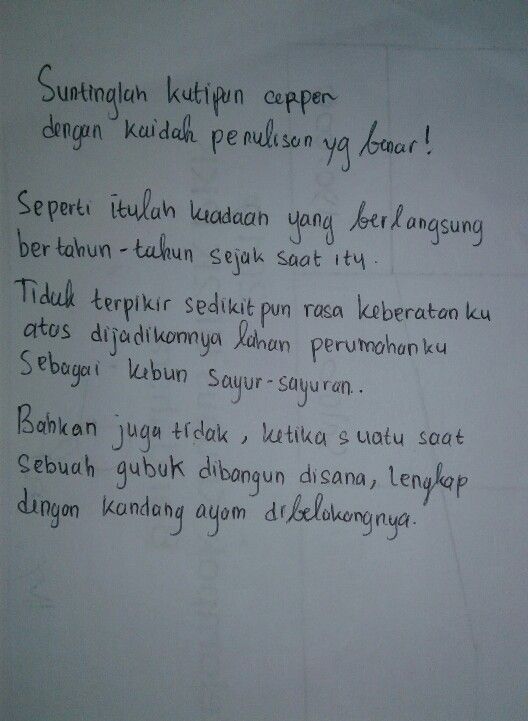 Suntinglah kutipan cerpen
dengan kaidah penulisan yg benar!
Seperti itulah keadaan yang berlangsung
bertahun-tahun sejak saat itu.
Tiduk terpikir sedikit pun rasa keberatan ku
atas dijadikannya lahan perumahanku
sebagai kebun sayur-sayuran..
Bahkan juga tidak, ketika suatu saat
sebuah gubuk dibangun disana, lengkap
dengan kandang ayam dibelakangnya.